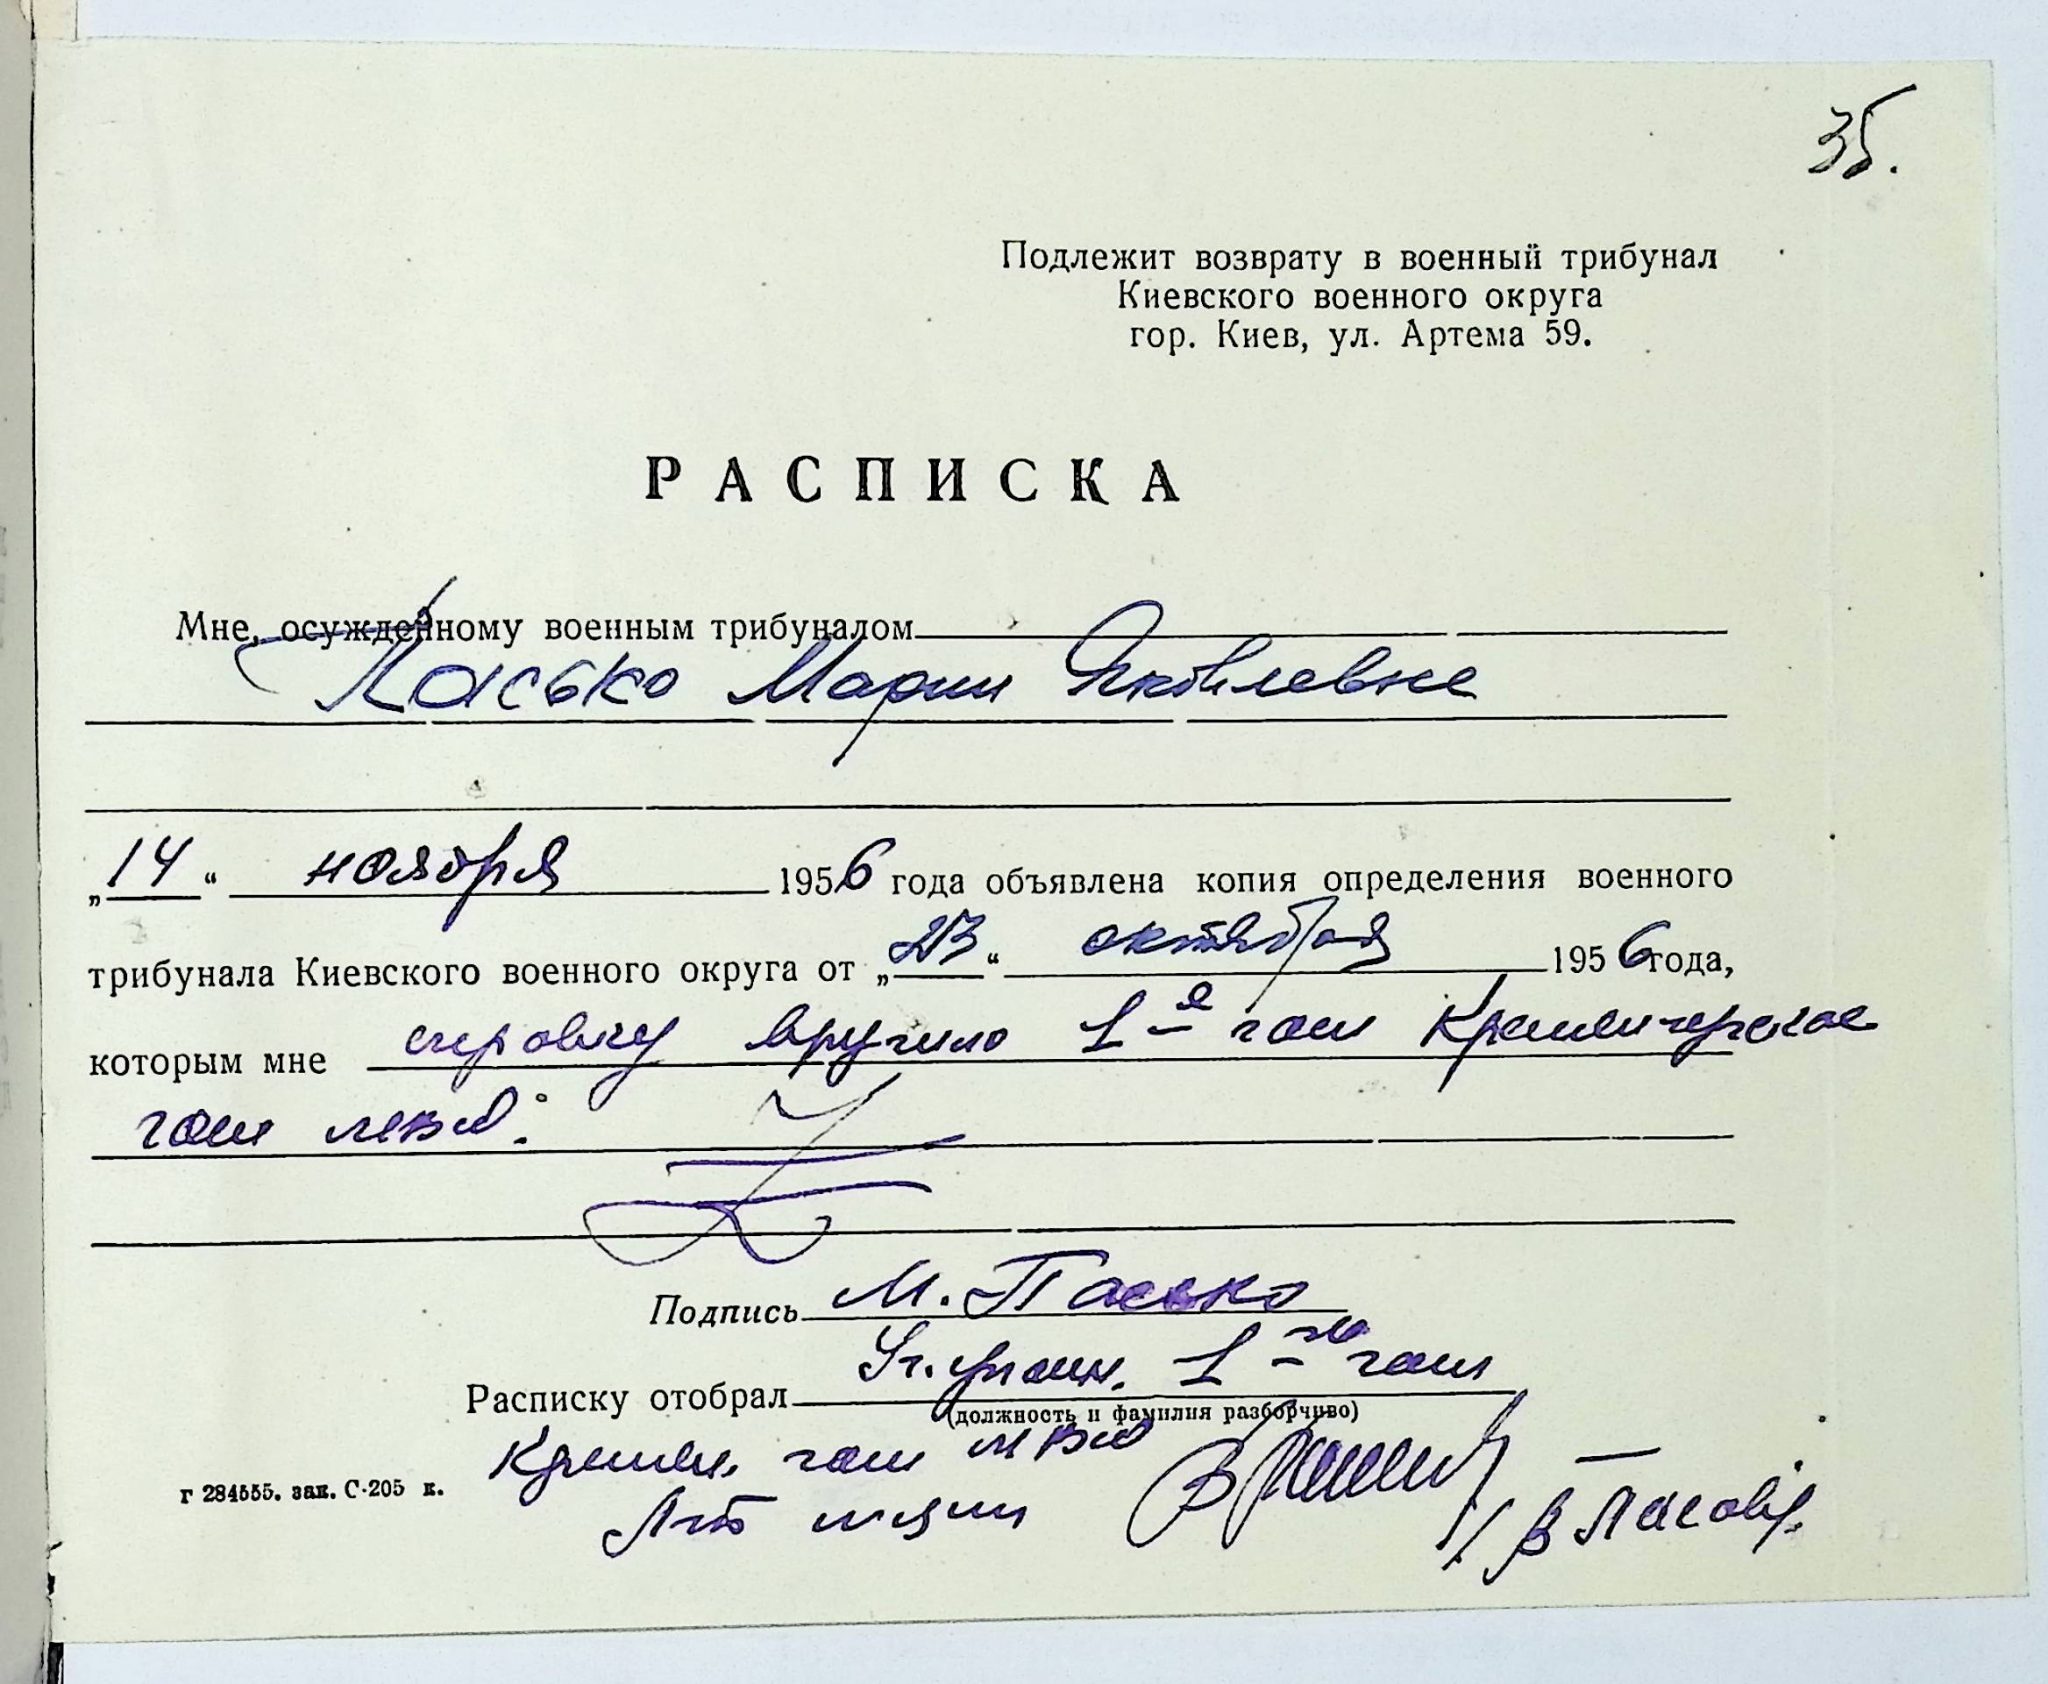 35.
Подлежит возврату в военный трибунал
Киевского военного округа
гор. Киев, ул. Артема 59.
РАСПИСКА
Мне, осужденному военным трибуналом
Пасько Марии Яковлевне
„14“ ноября 1956 года объявлена копия определения военного
трибунала Киевского военного округа от „23“ октября 1956 года,
которым мне справку вручило 1-е гом Кременчугское
гом
Подпись М. Пасько
Расписку отобрал 1-го гом
(должность и фамилия разборчиво)
Кременч. гом
г 284555. зак. С-205 к.